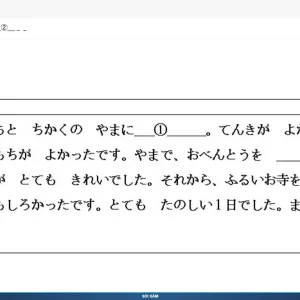 ②_ _ _
ちと ちかくの やまに___①______。てんきが よか
もちが よかったです。やまで、おべんとうを ___
が とても きれいでした。それから、ふるいお寺を
もしろかったです。とても たのしい１日でした。ま
SÔI ĐÀM